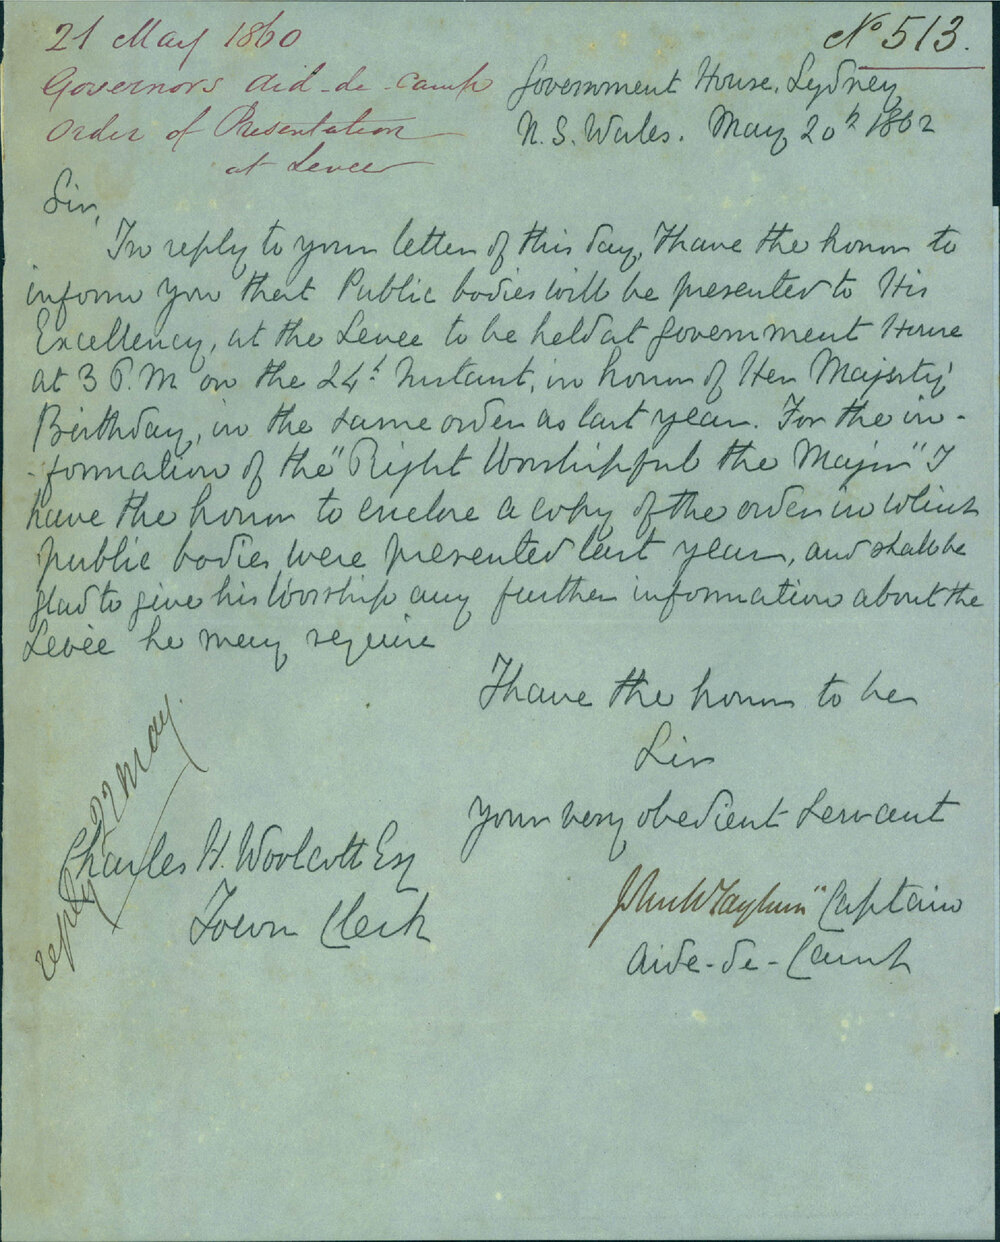 21 May 1860
Governors Aid-de-Camp
Order of Presentation
at Levee
No 513.
Government House, Sydney
N. S. Wales. May 20th 1862
Sir,
In reply to your letter of this day, I have the honor to
inform you that Public bodies will be presented to His
Excellency, at the Levee to be held at Government House
at 3 P.M. on the 24th Instant, in honor of Her Majesty's
Birthday, in the same order as last year. For the in-
-formation of the "Right Worshipful the Mayor" I
have the honor to enclose a copy of the order in which
public bodies were presented last year, and shall be
glad to give his Worship any further information about the
Levée he may require
I have the honor to be
Sir
Your very obedient Servant
Captain
Aide-de-Camp
Charles H. Woolcott Esq
Town Clerk
reply 22 May.